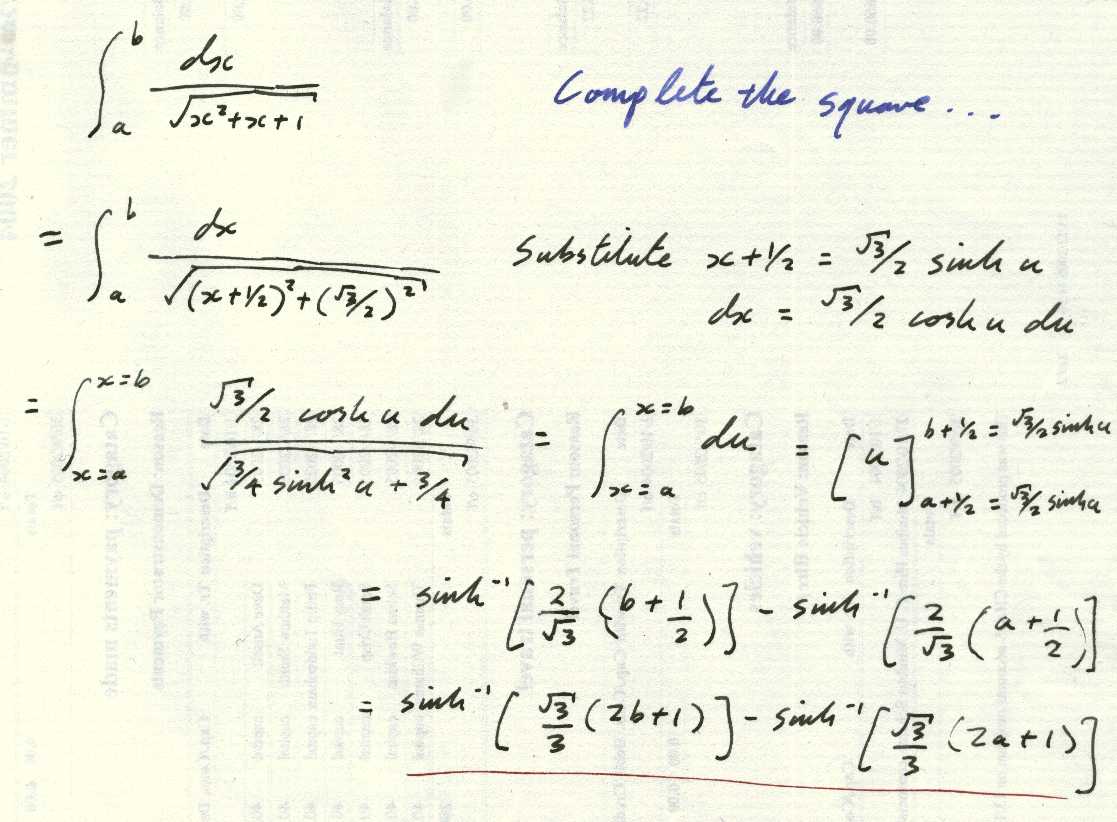 ∫_a^b dx / √(x²+x+1) Complete the square...
= ∫_a^b dx / √((x+1/2)²+(√3/2)²) Substitute x+1/2 = √3/2 sinh u
dx = √3/2 cosh u du
= ∫_{x=a}^{x=b} √3/2 cosh u du / √(3/4 sinh² u + 3/4) = ∫_{x=a}^{x=b} du = [u]_{a+1/2 = √3/2 sinh u}^{b+1/2 = √3/2 sinh u}
= sinh⁻¹[2/√3 (b+1/2)] - sinh⁻¹[2/√3 (a+1/2)]
= sinh⁻¹[√3/3 (2b+1)] - sinh⁻¹[√3/3 (2a+1)]